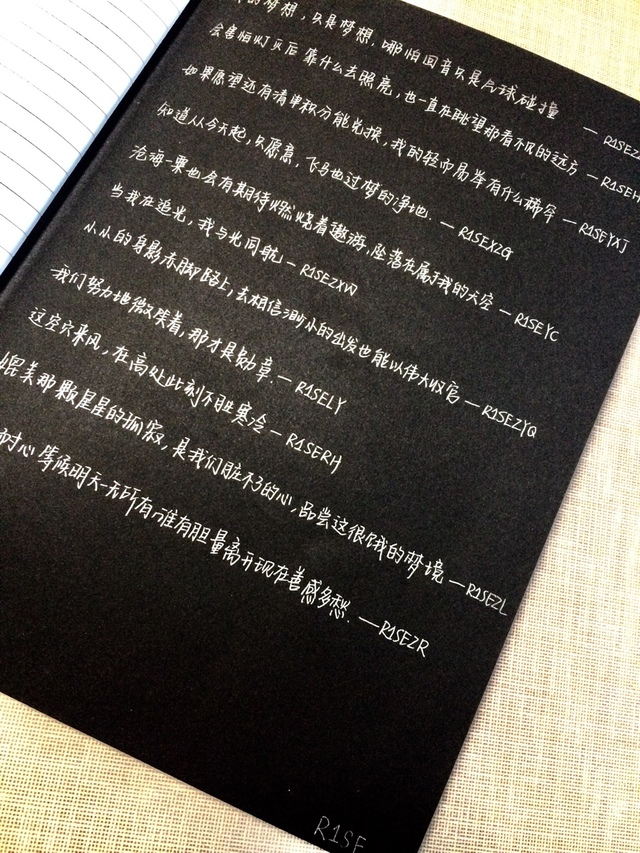 的梦想，只是梦想，哪怕回音只是气球碰撞 — R1SEZ
会害怕灯灭后 靠什么去照亮，也一直在眺望那看不见的远方 — R1SEH
如果愿望还有清单积分能兑换，我的轻而易举有什么稀罕 — R1SEYXJ
知道从今天起，只愿意，飞鸟也过梦的净地. — R1SEXZG
沧海一粟也会有期待燃烧着遨游，坠落在属于我的天空 — R1SEYC
当我在追光，我与光同航 — R1SEZXW
小小的身影赤脚踏上，去相信渺小的出发也能以伟大收官 — R1SEZYQ
我们努力地微笑着，那才是勋章. — R1SELY
这空穴来风，在高处此刻不胜寒冷 — R1SERH
媲美那颗星星的孤寂，是我们脏不了的心，品尝这很饿的梦境 — R1SEZL
耐心等候明天一无所有谁有胆量离开现在善感多愁. — R1SEZR
R1SE